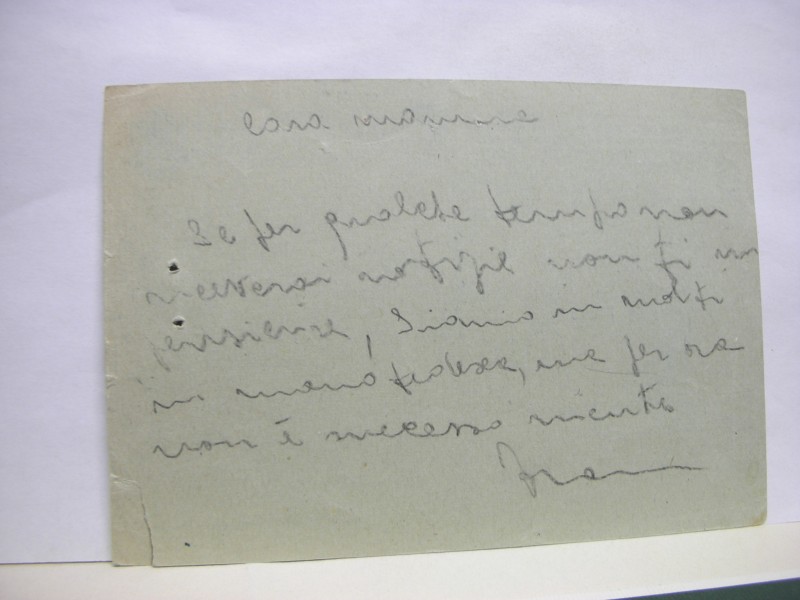 Cara mamma
Se per qualche tempo non
riceverai notizie non ti in
pensiero, Siamo in molti
in mano tedesca, ma per ora
non è successo niente